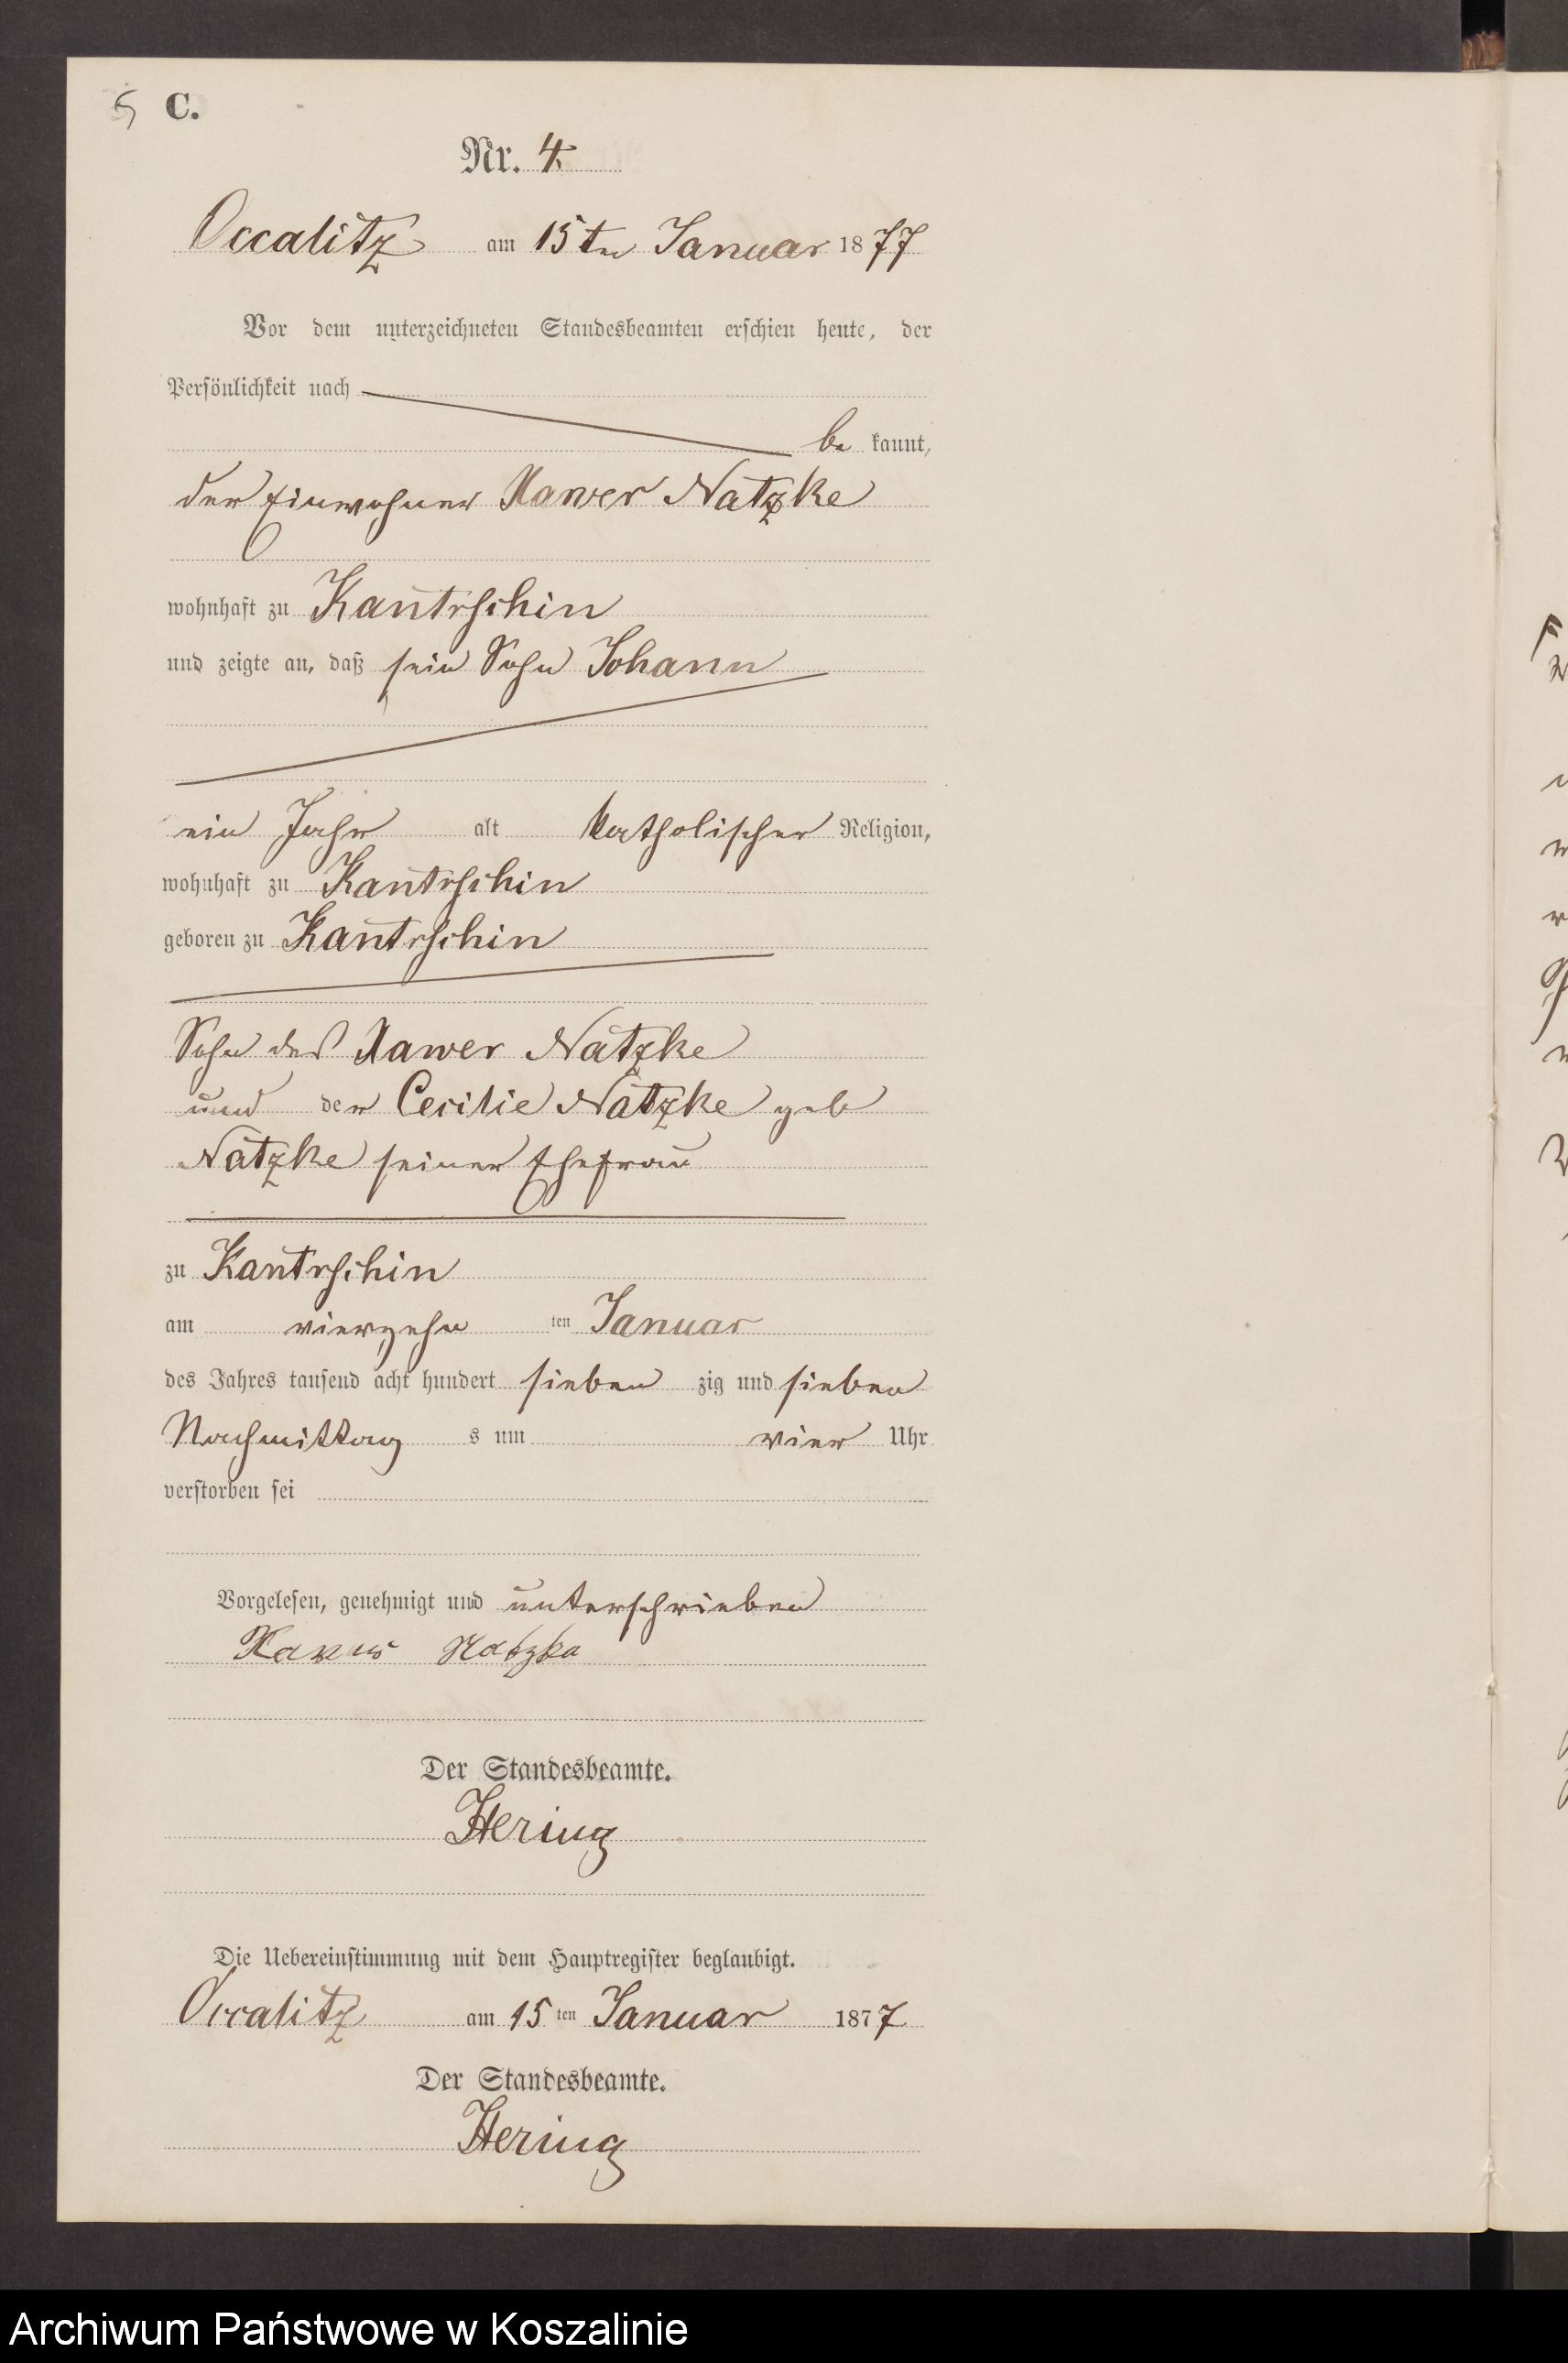 5 C.
Nr. 4
Occalitz am 15ten Januar 1877
Vor dem unterzeichneten Standesbeamten erschien heute, der
Persönlichkeit nach
be kannt,
der Einwohner Xawer Natzke
wohnhaft zu Kantrschin
und zeigte an, daß sein Sohn Johann
ein Jahr alt katholischer Religion,
wohnhaft zu Kantrschin
geboren zu Kantrschin
Sohn des Xawer Natzke
und der Cecilie Natzke geb
Natzke seiner Ehefrau
zu Kantrschin
am vierzehn ten Januar
des Jahres tausend acht hundert sieben zig und sieben
Nachmittag s um vier Uhr
verstorben sei
Vorgelesen, genehmigt und unterschrieben
Natzka
Der Standesbeamte.
Hering
Die Uebereinstimmung mit dem Hauptregister beglaubigt.
Occalitz am 15 ten Januar 1877
Der Standesbeamte.
Hering
Archiwum Państwowe w Koszalinie